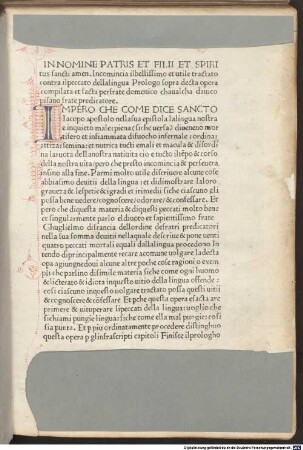 INNOMINE PATRIS ET FILII ET SPIRI
tus sancti amen. Incomincia ilbellissimo et utile tractato
contra ilpeccato dellalingua Prologo sopra decta opera
compilata et facta perfrate domenico chaualcha dauico
pisano frate predicatore.
IMPERO CHE COME DICE SANCTO
Iacopo apostolo nellasua epistola lalingua nostra
e inquieto male: piena (siche uersa) diueneno mor
tifero et infiammata difuocho infernale: ordina:
attiza: semina: et nutrica tucti emali et macula & disordi
na laruota dellanostra natiuita cio e tucto iltēpo & corso
della nostra uita: pero che presto incomincia & perseuera
insino alla fine. Parmi molto utile descriuere alcune cose
abbiasimo deuitii della lingua: et didimostrare laloro
graueza & lespetie & igradi et rimedii: siche ciascuno gli
possa bene uedere / cognoscere / odorare / & confessare. Et
pero che diquesta materia & diquesti peccati molto bene
et singularmente parlo eldiuoto et sapientissimo frate
Ghuglielmo difrancia dellordine defrati predicatori
nella sua somma deuitii nellaquale descriue & pone uenti
quattro peccati mortali equali dallalingua procedono In
tendo diprincipalmente recare acomune uolgare ladecta
opa agiungnedoui alcune altre poche cose ragioni o exem
pli: che parsino disimile materia siche come ogni huomo
& licterato & idiota inquesto uitio della lingua offende:
cosi ciascuno inquesto uolgare tractato possa questi uitii
& cognoscere & cōfessare. Et pche questa opera efacta are
primere & aiutuperare lipeccati della lingua: uoglio che
sichiami pungie lingua: siche come ella mal pungie: cosi
sia punta. Et p piu ordinatamente procedere distinghuo
questa opera p glinfrascripti capitoli Finisce ilprologho